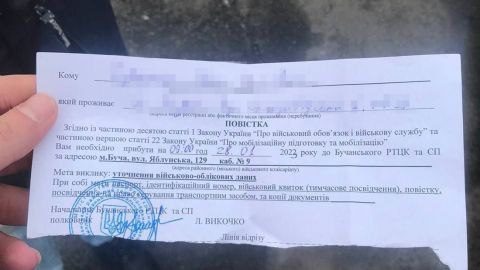 Кому
який проживає
(адреса місця реєстрації або фактичного місця проживання (перебування)
ПОВІСТКА
Згідно із частиною десятою статті 1 Закону України "Про військовий обов'язок і військову службу" та
частиною першою статті 22 Закону України "Про мобілізаційну підготовку та мобілізацію"
Вам необхідно прибути на 09.00 год 28.01 2023 року до Бучанського РТЦК та СП
за адресою м.Буча, вул. Яблунська, 129 каб. № 9
Мета виклику: уточнення військово-облікових даних
При собі мати паспорт, ідентифікаційний номер, військовий квиток (тимчасове посвідчення), повістку,
посвідчення на право керування транспортним засобом, та копії документів
Начальник Бучанського РТЦК та СП
полковник Л. ВИКОЧКО
Лінія відрізу